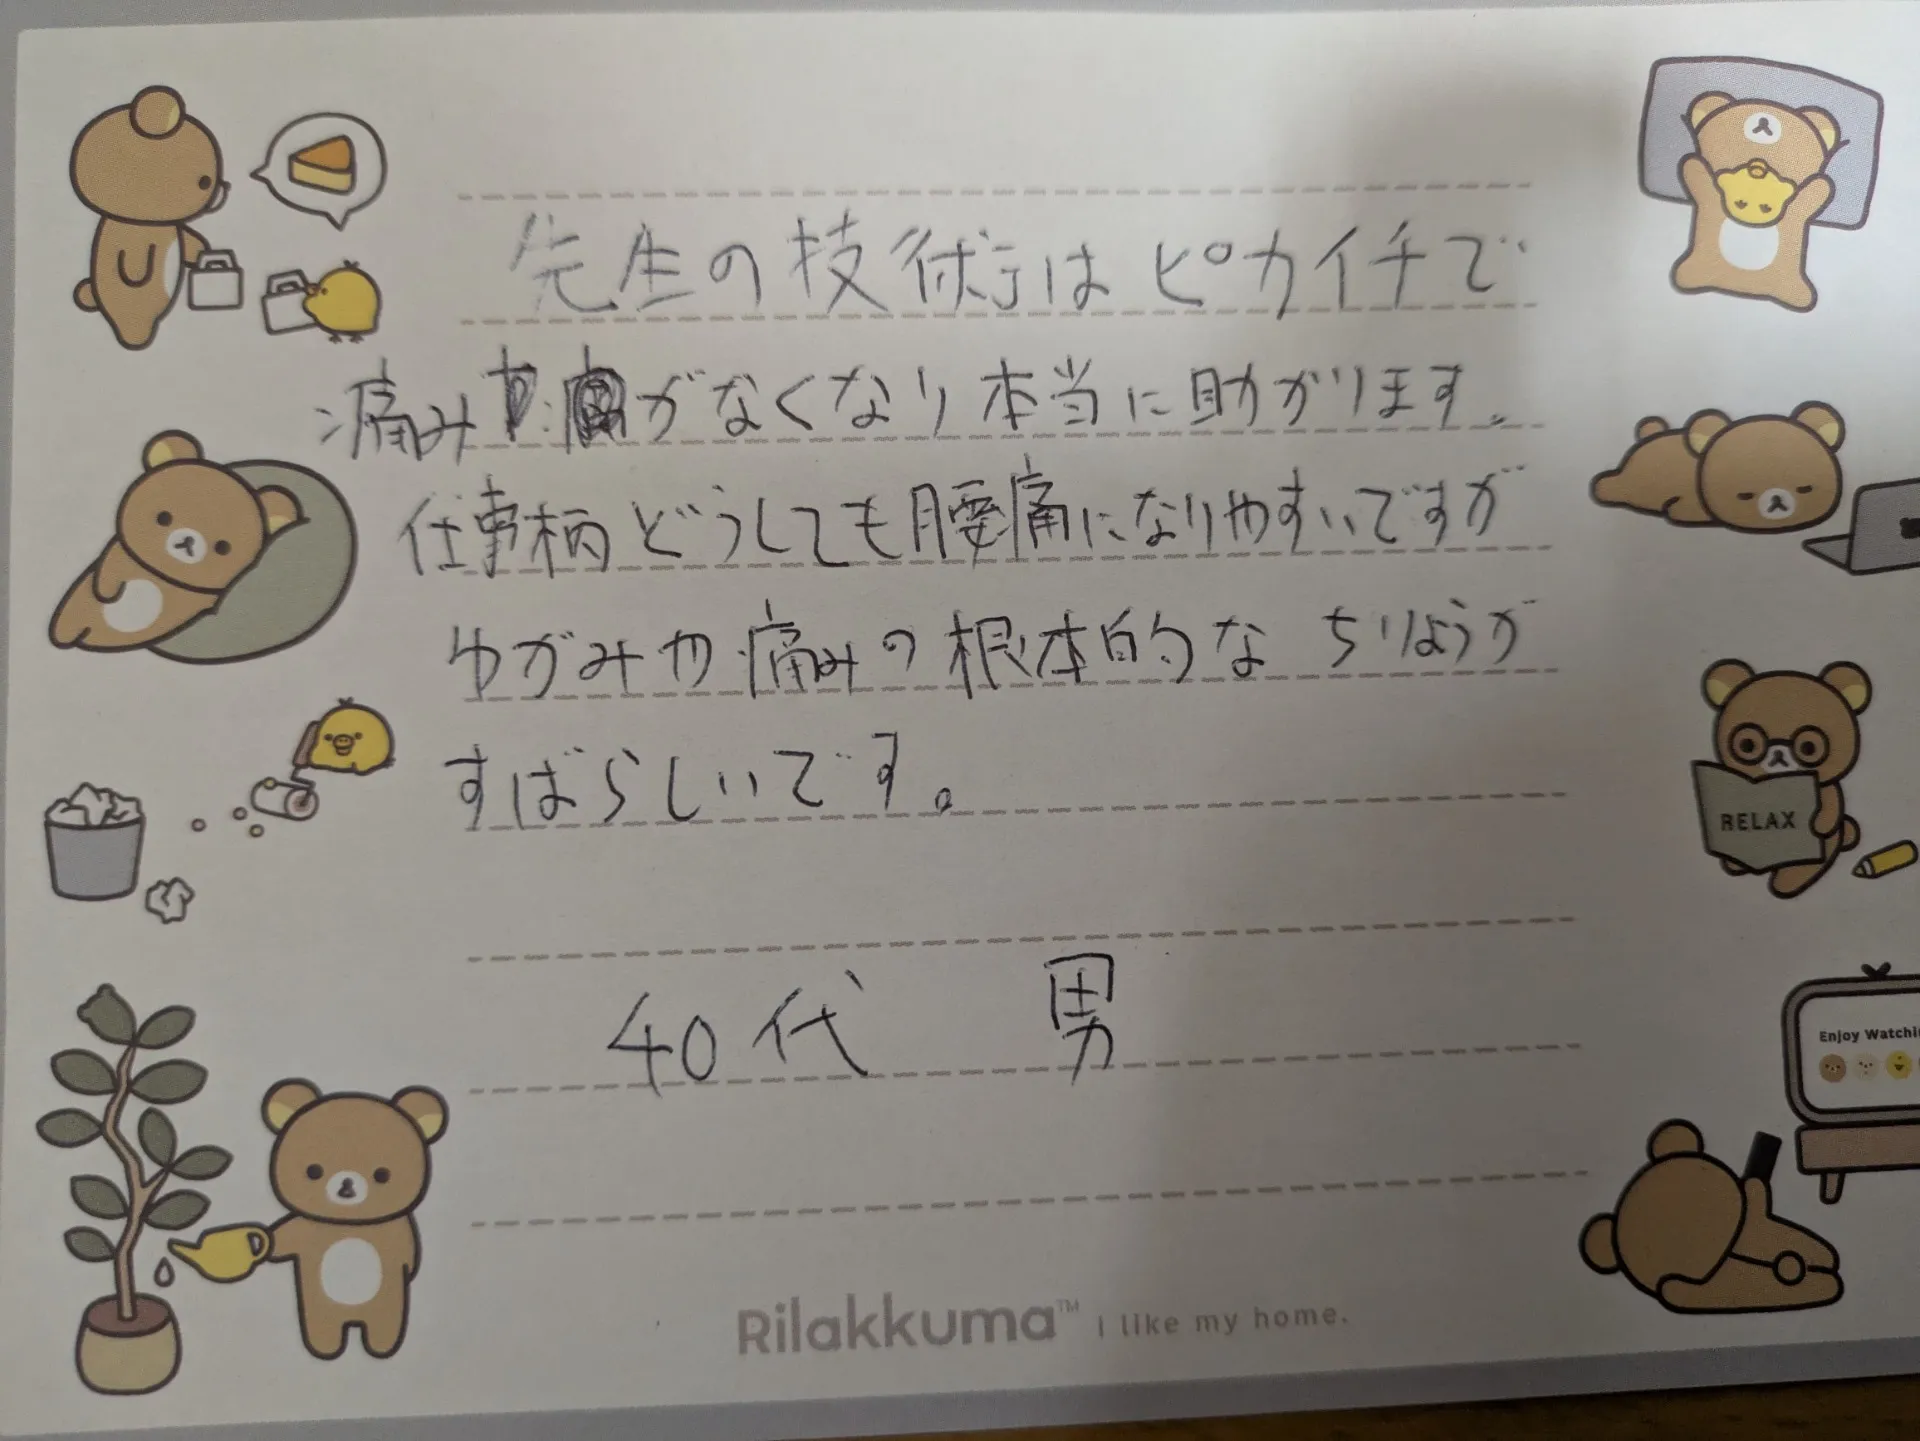 先生の技術はピカイチで
痛みがなくなり本当に助かります。
仕事柄どうしても腰痛になりやすいですが
ゆがみや痛みの根本的なちりょうが
すばらしいです。
40代 男
RELAX
Enjoy Watchin
Rilakkuma™ I like my home.